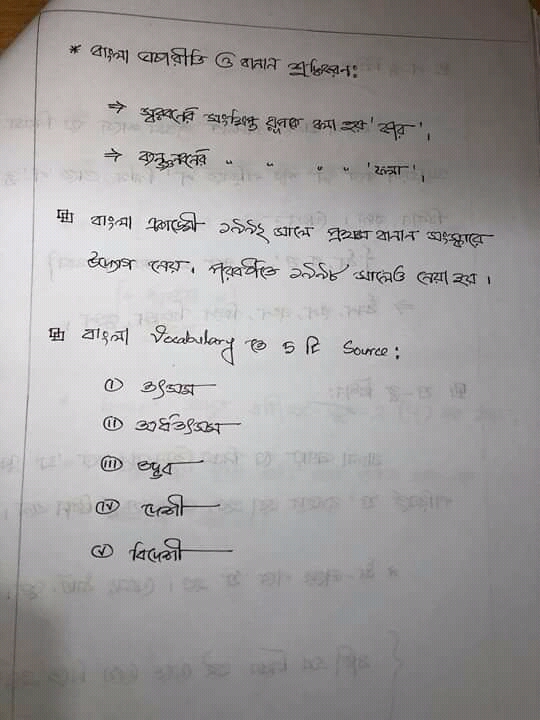 * বাংলা লেখারীতি ও বানান শুদ্ধিকরন:
⇒ স্বরবর্নের সংক্ষিপ্ত রূপকে বলা হয় 'কার'।
⇒ ব্যঞ্জনবর্নের " " " " 'ফলা'।
বাংলা একাডেমী ১৯৯২ সালে প্রথম বানান সংস্কারে
উদ্যোগ নেয়। পরবর্তিতে ১৯৯৮ সালেও নেয়া হয়।
বাংলা Vocabulary তে 5 টি Source:
(I) তৎসম
(II) অর্ধতৎসম
(III) তদ্ভব
(IV) দেশী
(V) বিদেশী